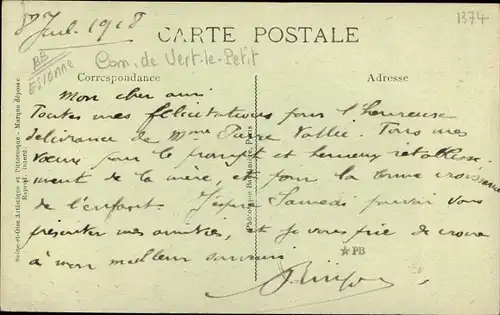 8 Juil. 1918
CARTE POSTALE
1374
BB
ESSONNE
Com. de Vert-le-Petit
Correspondance
Adresse
Mon cher ami
Toutes mes félicitations pour l'heureuse
délivrance de Mme Pierre Vallée. Tous mes
vœux pour le prompt et heureux rétablisse
ment de la mère, et pour la bonne croissance
de l'enfant. J'espère Samedi pouvoir vous
présenter mes amitiés, et je vous prie de croire
à mon meilleur souvenir
PB
Seine-et-Oise Artistique et Pittoresque - Marque déposée
Reprod. interd.
Paris